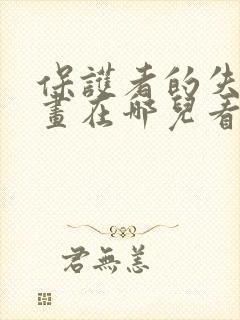 保護者的失
畫在哪兒看
君無恙